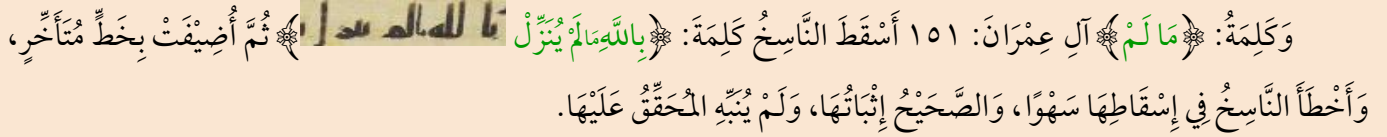 وَكَلِمَةُ: ﴿مَا لَمْ﴾ آلِ عِمْرَانَ: ١٥١ أَسْقَطَ النَّاسِخُ كَلِمَةَ: ﴿بِاللَّهِ مَا لَمْ يُنَزِّلْ ﴾ ثُمَّ أُضِيْفَتْ بِخَطٍّ مُتَأَخِّرٍ،
وَأَخْطَأَ النَّاسِخُ فِي إِسْقَاطِهَا سَهْوًا، وَالصَّحَيْحُ إِثْبَاتُهَا، وَلَمْ يُنَبِّهِ المُحَقِّقُ عَلَيْهَا.